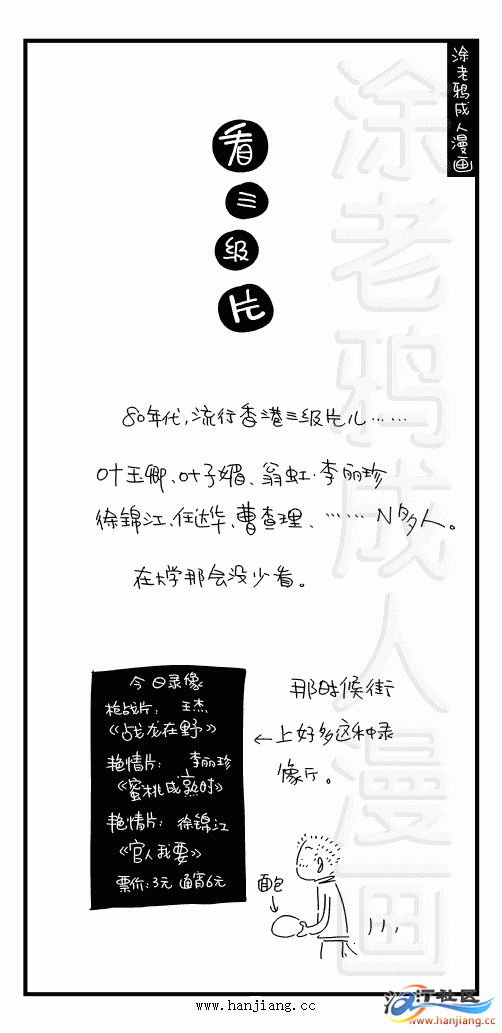 涂老鸦成人漫画
涂老鸦成人漫画
看三级片
80年代,流行香港三级片儿……
叶玉卿、叶子媚、翁虹·李丽珍
徐锦江、任达华、曹查理、……N多人。
在大学那会没少看。
今日录像
枪战片: 王杰
《战龙在野》
艳情片: 李丽珍
《蜜桃成熟时》
艳情片: 徐锦江
《官人我要》
票价:3元 通宵6元
那时候街
←上好多这种录
像厅。
面包
www.hanjiang.cc
社区
www.hanjiang.cc